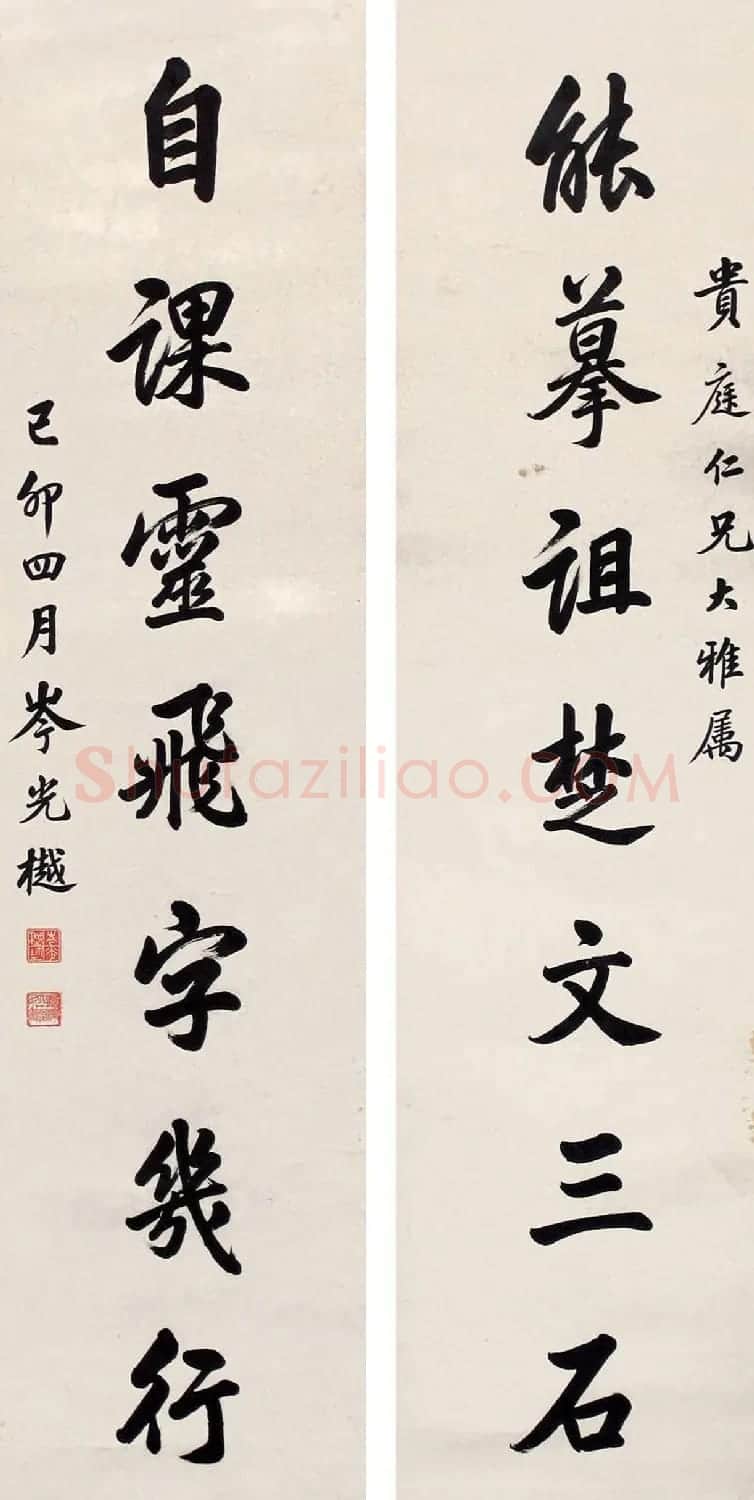 貴庭仁兄大雅属
能摹詛楚文三石
自課靈飛字幾行
己卯四月岑光樾
Shufaziliao.COM